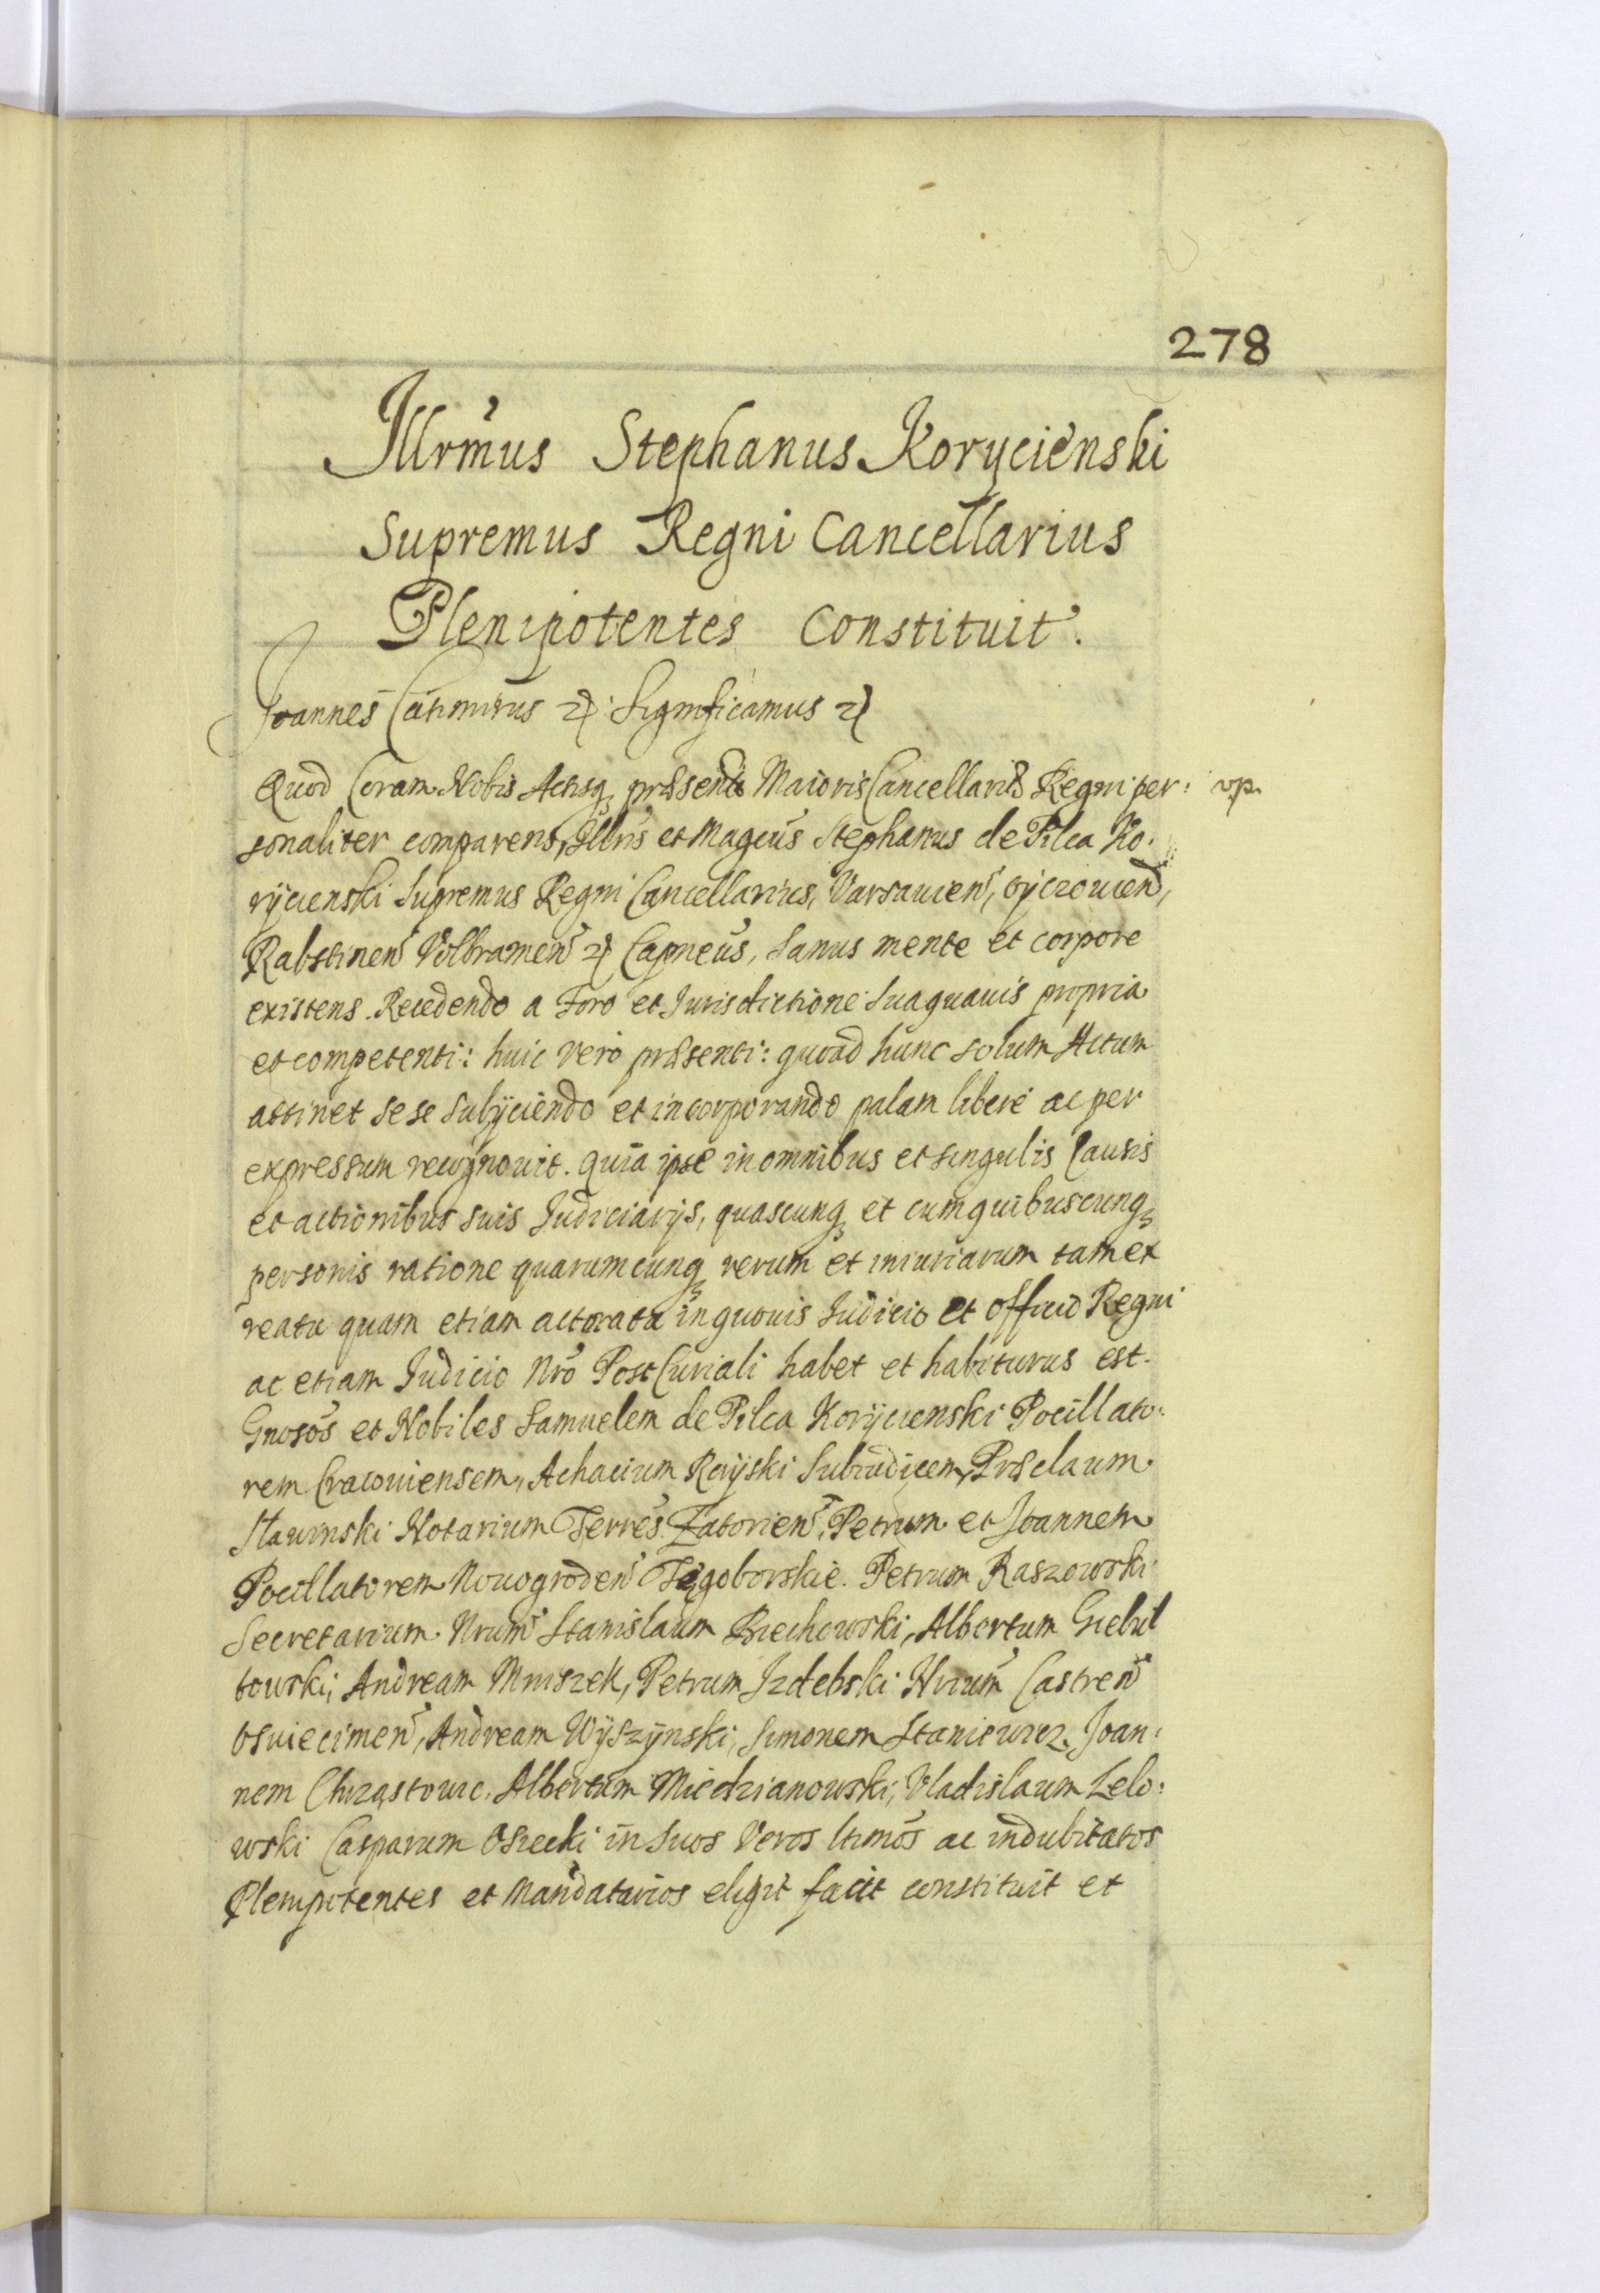 278
Jllrmus Stephanus Koryciénski
Supremus Regni Cancellarius
Plenipotentes Constituit.
Joannes Casimirus &. Significamus &
Quod Coram Nobis Actisq3 præsend Maioris Cancellariæ Regni per: vp.
sonaliter comparens, Jllris et Magcus Stephanus de Pilca Ko.
rÿcienski Supremus Regni Cancellarius, Varsauien, Oÿczouien,
Rabstinen Volbramen & Capneus, Sanus mente et corpore
existens. Recedendo a Foro et Jurisdictione Sua quauis propria
et competenti: huic vero præsenti: quoad hunc solum Actum
attinet sese subÿciendo et incorporando palam libere ac per
expressum recognouit. Quia ipse in omnibus et singulis Causis
et actionibus suis Judiciarÿs, quascunq3 et cum quibuscunq3
personis ratione quarumcunq3 rerum et iniuriarum tam ex
reatu quam etiam actoratu in quouis Judicio et Officio Regni
ac etiam Judicio Nro Post Curiali habet et habiturus est.
Gnosos et Nobiles Samuelem de Pilca Korÿcienski Pocillato:
rem Cracouiensem, Achacium Raÿski Subiudicem, Præclaum
Stawinski Notarium Terres Zatorien, Petrum et Joannem
Pocillatorem Nouogroden Tęgoborskie. Petrum Raszowski
Secretarium Nrum Stanislaum Biechowski, Albertum Giebul
towski, Andream Mniszek, Petrum Jzdebski Nrium Castren
Osuiecimen, Andream Wÿszÿnski, Simonem Staniewicz, Joan:
nem Chrząstowic. Albertum Miedzianowski, Vladislaum Lelo:
wski Casparum Osiecki in Suos Veros ltimos ac indubitatos
Plenipotentes et Mandatarios eligit facit constituit et